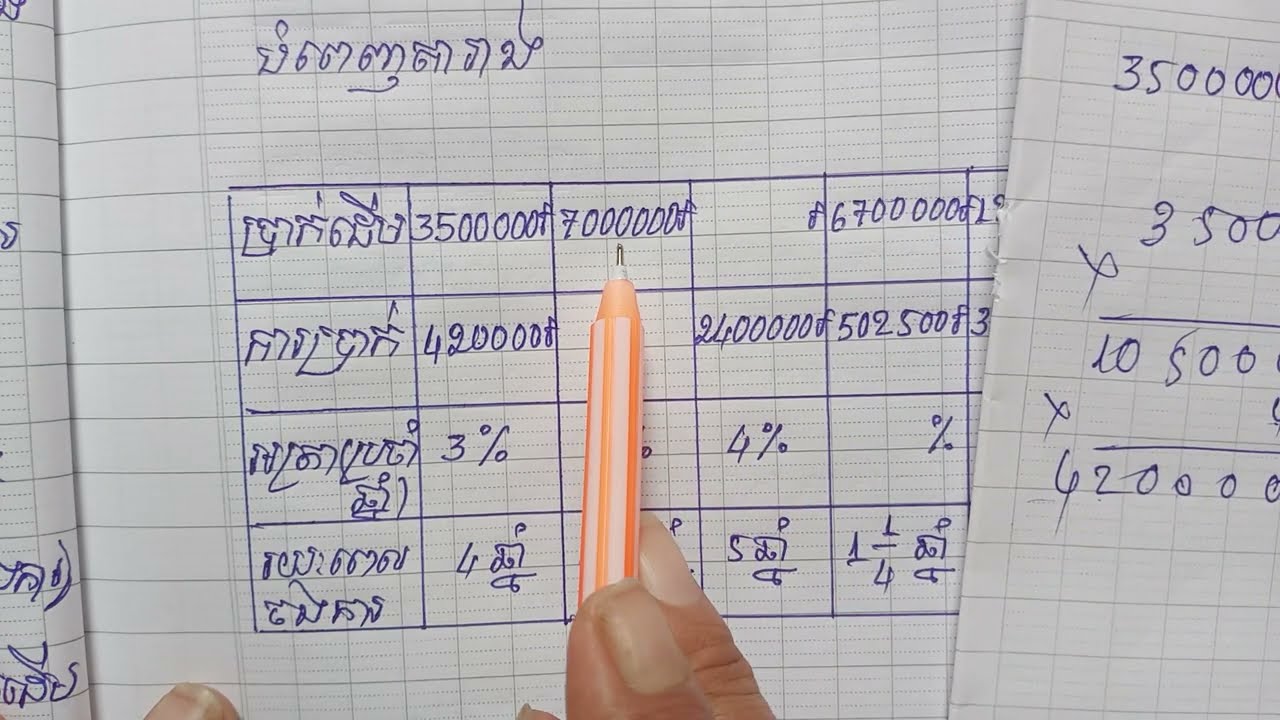 បំពេញតារាង
ប្រាក់ដើម 3500000៛ 7000000៛ ៛ 6700000៛
ការប្រាក់ 420000៛ 2400000៛ 502500៛ 3
អត្រាប្រចាំ 3% 4% %
ឆ្នាំ)
រយៈពេល 4 ឆ្នាំ 5 ឆ្នាំ 1 1/4 ឆ្នាំ
ចងការ
3500000
3 500
×
10 5000
×
420000